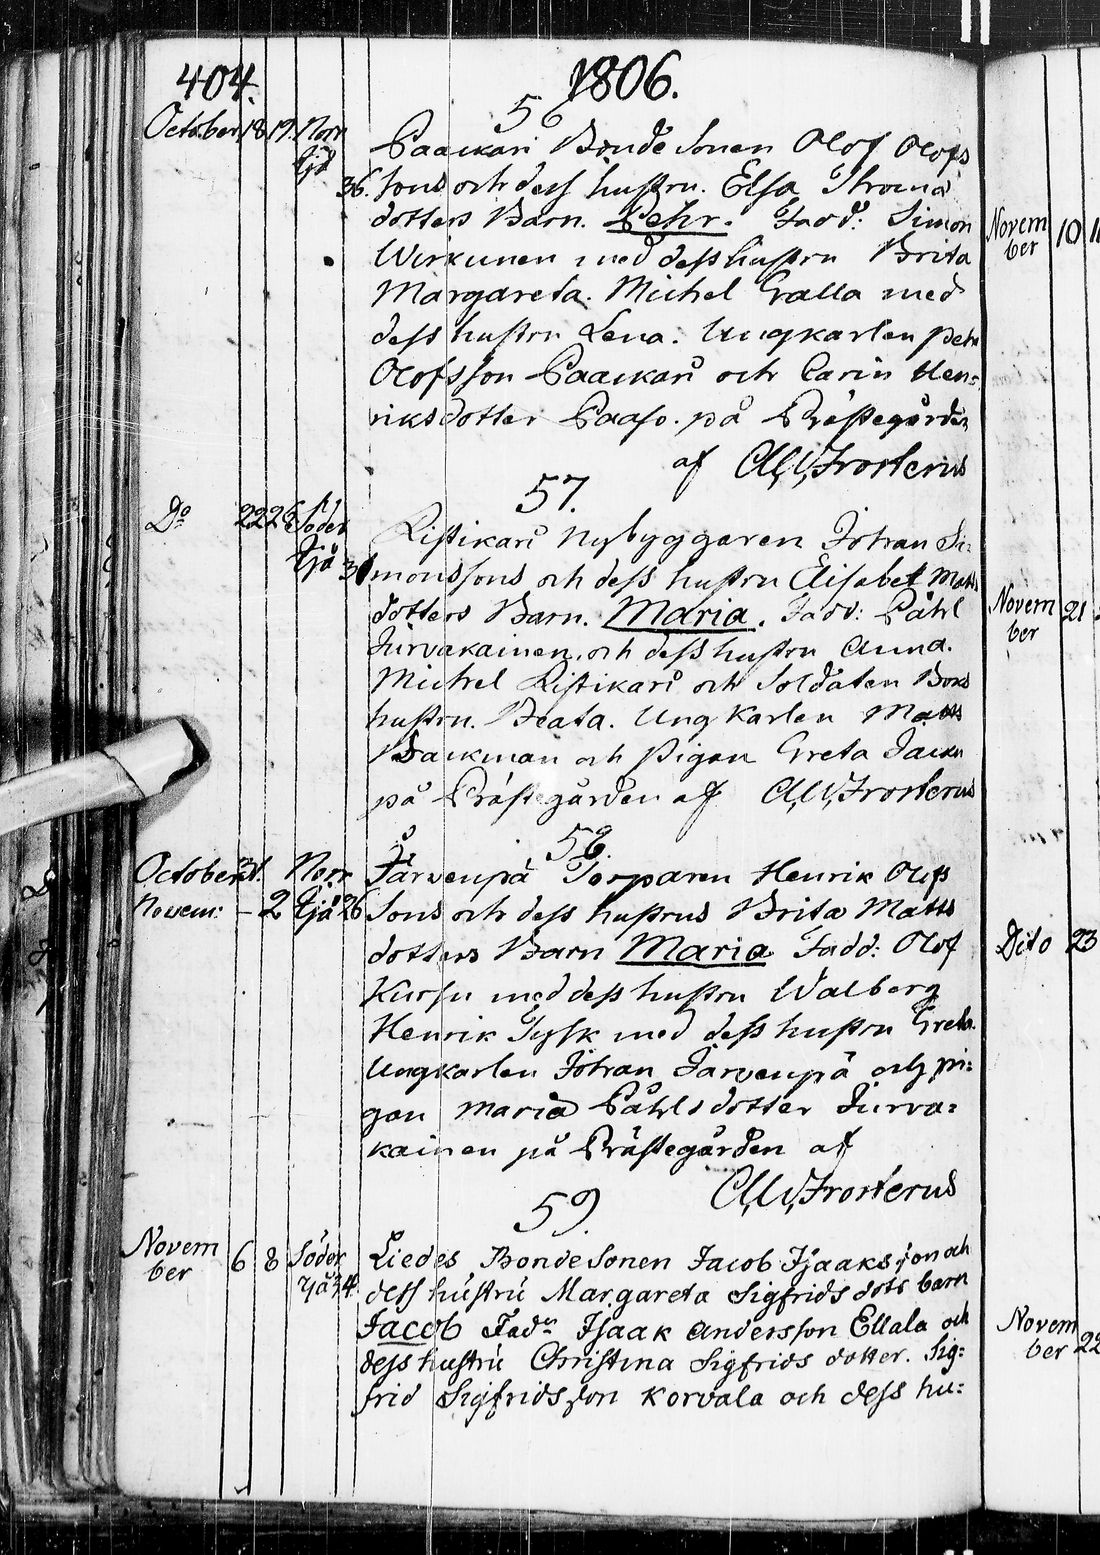 404.
1806.
56
October 18 19. Norr
Paackari Bonde Sonen Olof Olofs
36. Sons och dess hustru. Elsa Thomæ
dotters Barn. Pehr. Fadd: Simon
Wirkunen med dess hustru Brita
Margareta. Michel Gralla med
dess hustru Lena. Ungkarlen Pehr
Olofsson Paackari och Carin Hen:
riksdotter Paaso. på Prästegården
af Frosterus
57.
Do 22 26 Söder
Ristikari Nybyggaren Johan Si:
monssons och dess hustru Elisabet Matts
dotters Barn. Maria. Fadd: Påhl
Jurvakainen. och dess hustru Anna.
Michel Ristikari och Soldaten
hustru. Beata. Ungkarlen Matts
Backman och Pigan Greta
på Prästegården af Frosterus
58.
October 31. Norr
Järvenpä Torparen Henrik Olofs
Novem: - 2 26
Sons och dess hustrus Brita Matts
dotters Barn Maria Fadd: Olof
Kursu med dess hustru Walberg
Henrik Tysk med dess hustru Greta.
Ungkarlen Johan Järvenpä och pi:
gan Maria Påhlsdotter Jurva=
kainen på Prästegården af
Frosterus
59.
Novem
ber 6 8 Söder
34
Liedes Bonde Sonen Jacob Isaaksson och
dess hustru Margareta Sigfrids dots barn
Jacob Fadr Isaak Andersson Ellala och
dess hustru Christina Sigfrids dotter. Sig=
frid Sigfridsson Korvala och dess hu=
Novem
ber 10
Novem
ber 21
Dito 23
Novem
ber 22